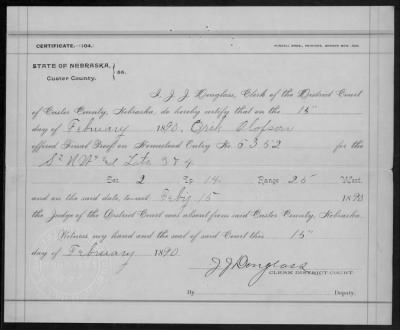 CERTIFICATE.—104.
STATE OF NEBRASKA,
Custer County. } ss.
I, J. J. Douglass, Clerk of the District Court
of Custer County, Nebraska, do hereby certify that on the 15"
day of February 1890, Olofson
offered Final Proof on Homestead Entry No. 5352 for the
S½ NW¼ & Lots 3 & 4
Sec. 2 Tp. 14 Range 25 West.
and on the said date, to-wit Feby 15 1890
the Judge of the District Court was absent from said Custer County, Nebraska.
Witness my hand and the seal of said Court this 15"
day of February 1890
J J Douglass
CLERK DISTRICT COURT.
By Deputy.